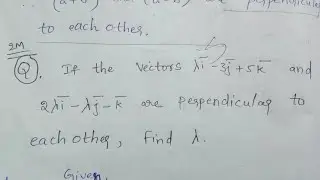 to each other.
2M
Q. If the vectors λi̅ - 3j̅ + 5k̅ and
2λi̅ - λj̅ - k̅ are perpendicular to
each other, Find λ.
Given,